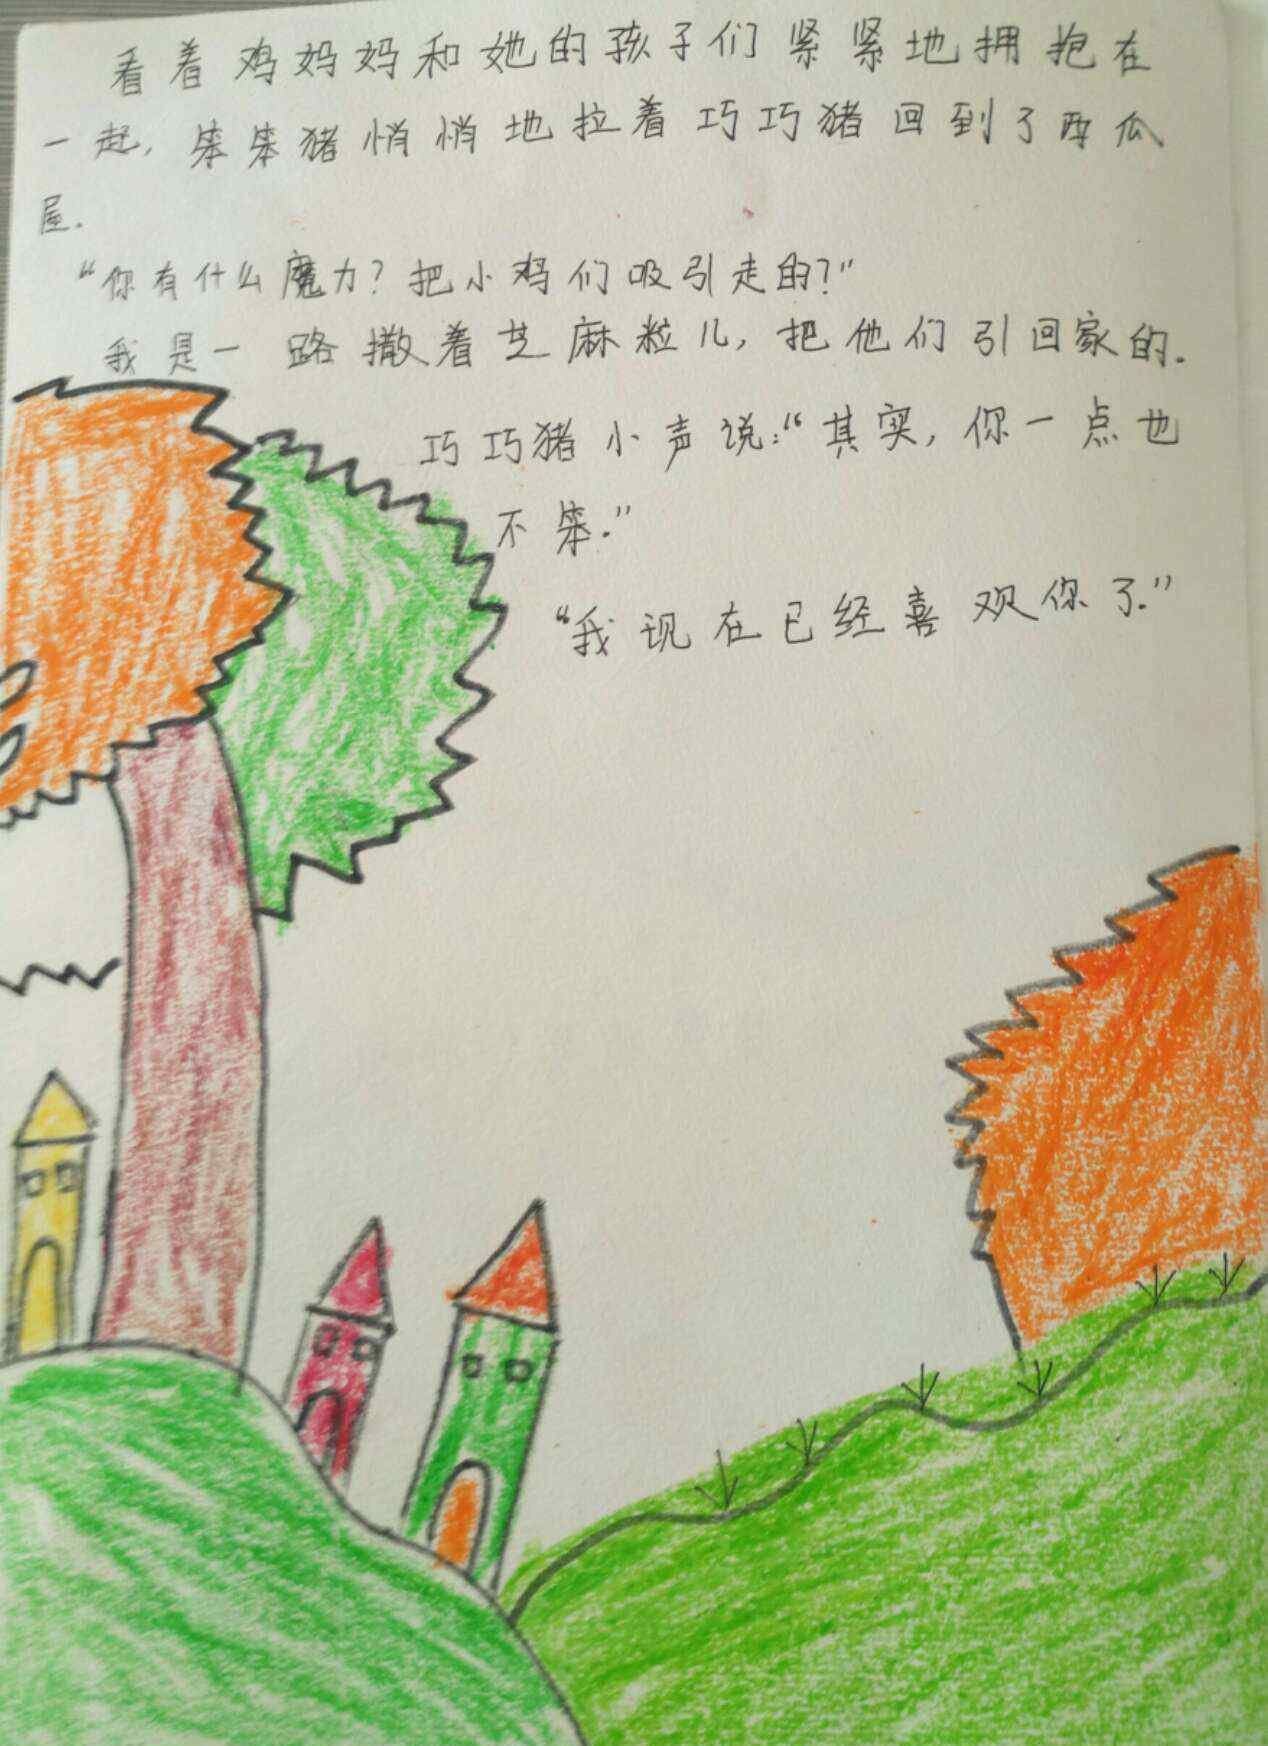 看着鸡妈妈和她的孩子们紧紧地拥抱在
一起,笨笨猪悄悄地拉着巧巧猪回到了西瓜
屋.
“你有什么魔力?把小鸡们吸引走的?”
我是一路撒着芝麻粒儿,把他们引回家的.
巧巧猪小声说:“其实,你一点也
不笨.”
“我现在已经喜欢你了.”